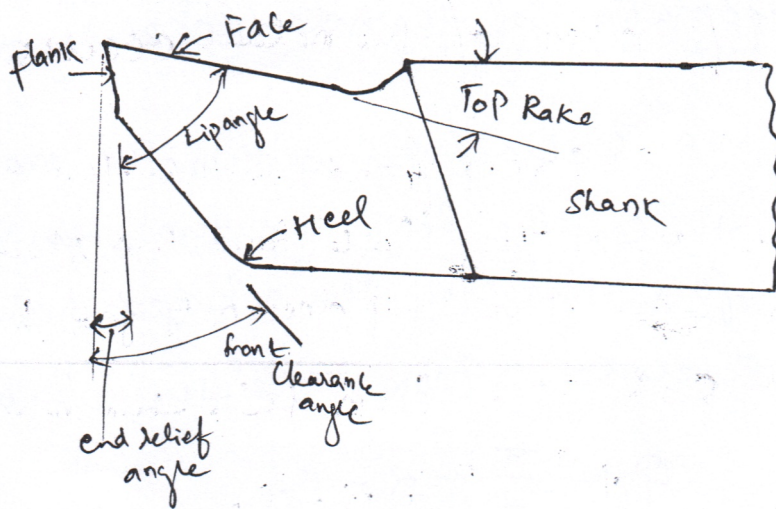 Face
flank
Lip angle
Top Rake
Shank
Heel
front
Clearance
angle
end relief
angle